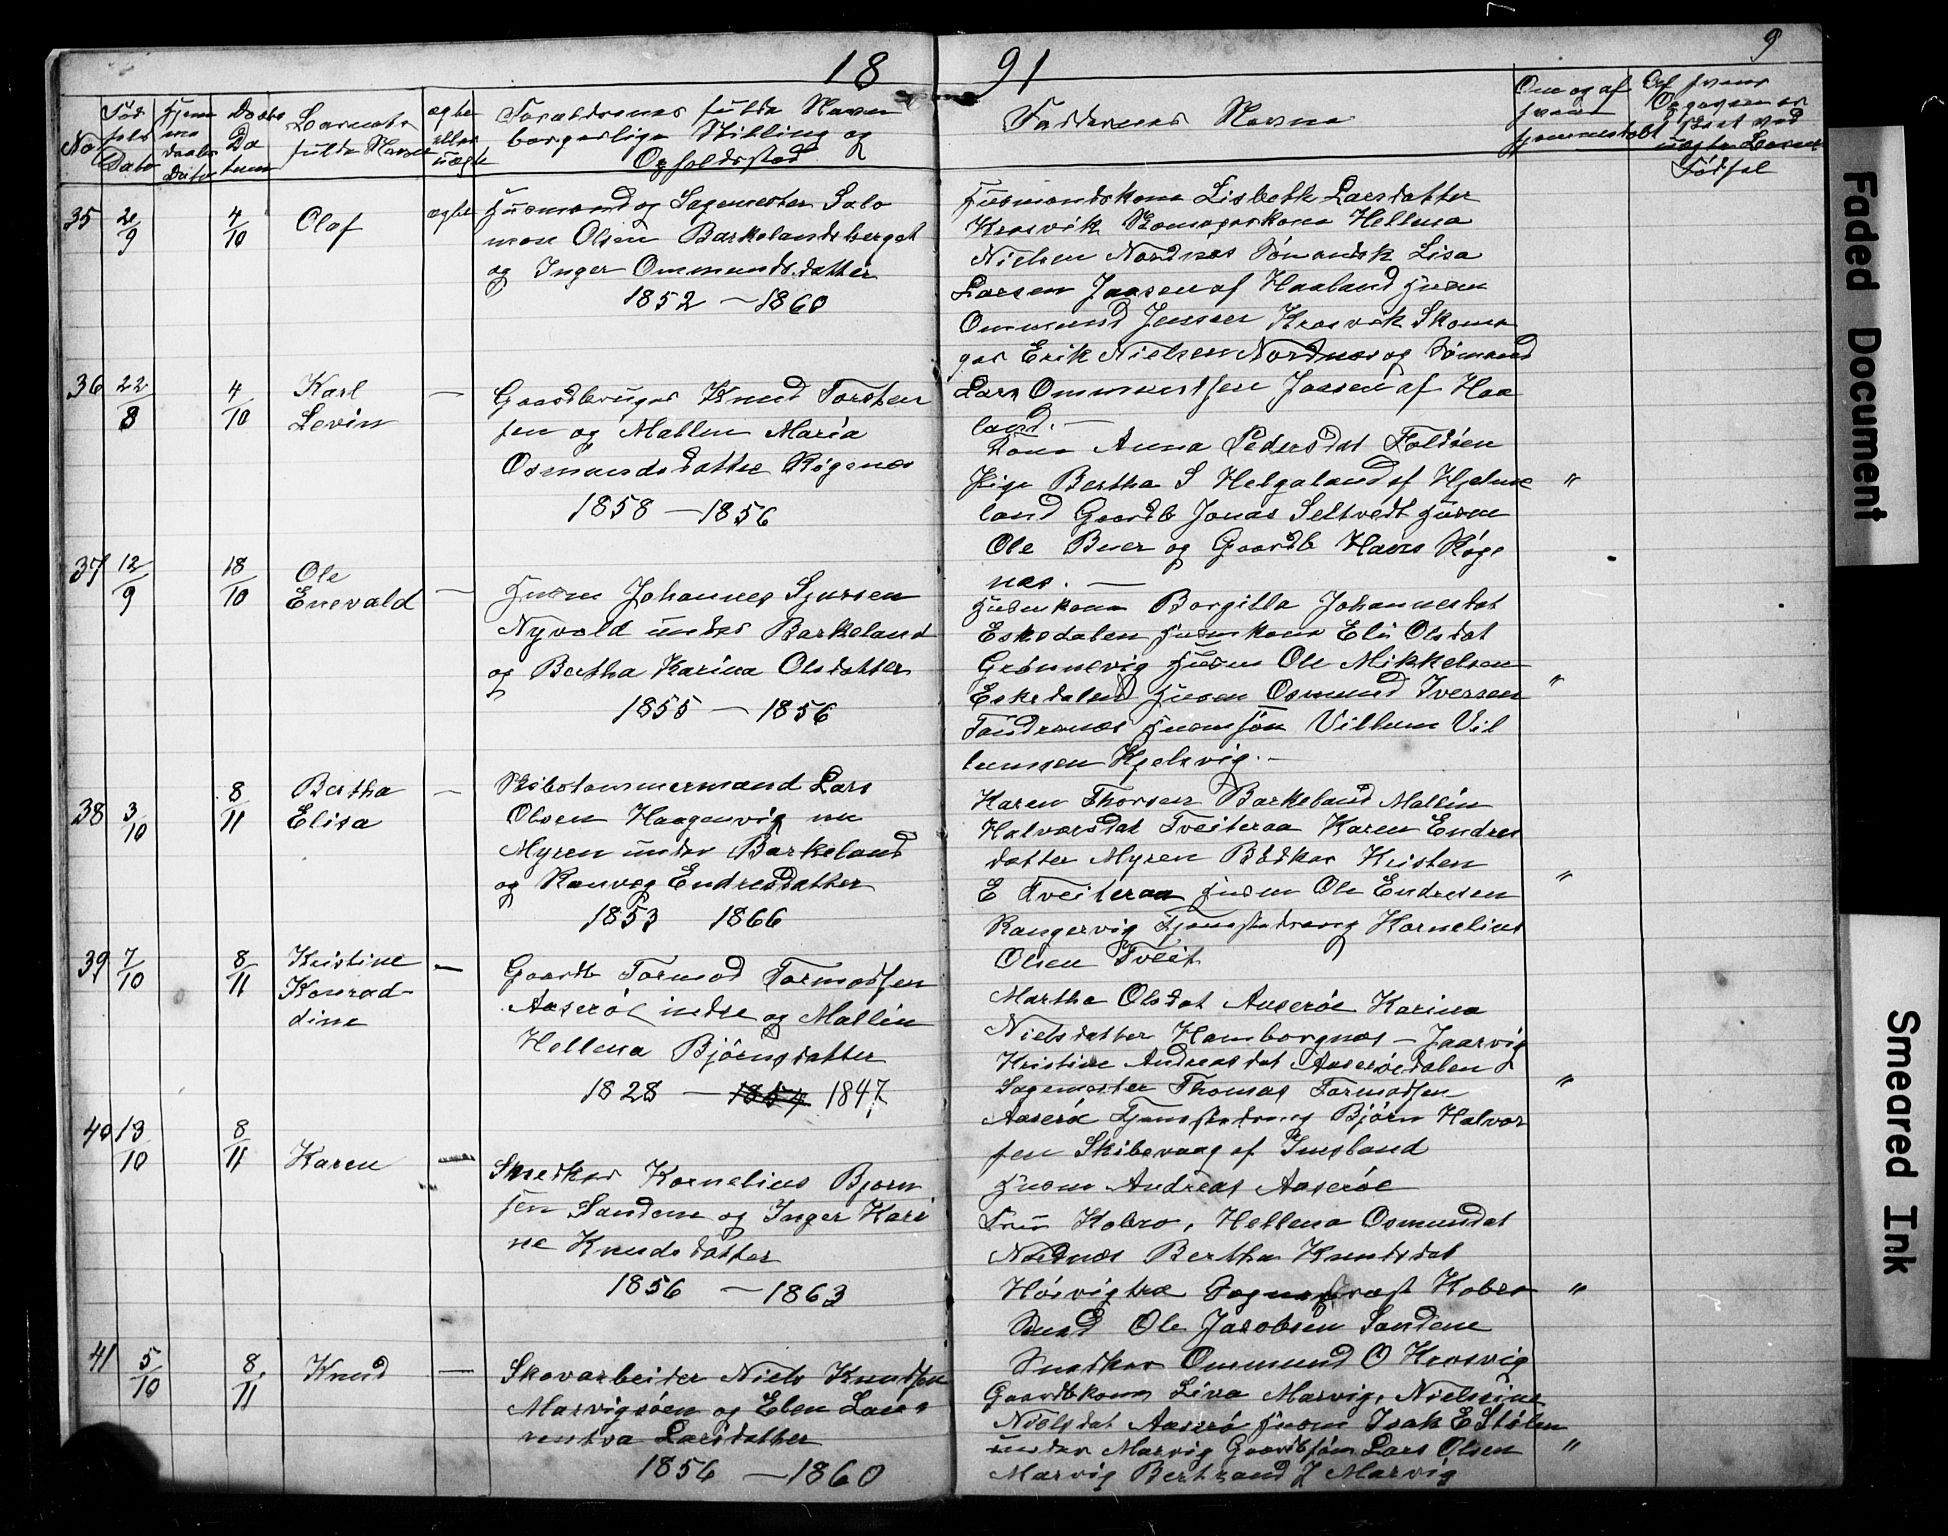 18 91
9
No
Fød
sels
Dato
Hjem
me
daabs
Dato
Daabs
Da
tum
Barnets
fulde Navn
ægte
eller
uægte
Forældrenes fulde Navn
borgerlige Stilling og
Opholdssted
Faddernes Navne
Om og af
hvem
hjemmedøbt
Af hvem
Opgaven er
skeet ved
uægte Børns
Fødsel
35 21/9 4/10 Olaf ægte
Husmand og Sagmester Salo
mon Olsen Barkelandsberget
og Inger Ommundsdatter
1852 – 1860
Husmandskone Lisbeth Larsdatter
Krosvik Skomagerkone Hellena
Nielsen Nordnæs Sømandsk Lisa
Larsen Jaasen af Haaland Husm
Ommund Jensen Krosvik Skoma
ger Erik Nielsen Nordnæs og Sømand
Lars Ommundsen Jaasen af Haa
land. –
36 22/8 4/10 Karl
Levin –
Gaardbruger Knud Torsten
sen og Mallen Maria
Osmundsdatter Røgenes
1858 – 1856
Kone Anna Pedersdat Foldøen
Pige Bertha S Helgaland af Hjelme
land Gaardb Jonas Seltvedt Husm
Ole Buer og Gaardb Hans Røge
næs. – "
37 12/9 18/10 Ole
Enevald –
Husm Johannes Sjursen
Nyvold under Barkeland
og Bertha Karina Olsdatter
1855 – 1856
Husmkone Borgilla Johannesdat
Eskedalen Husmkone Eli Olsdat
Grønnevig Husm Ole Mikkelsen
Eskedalen Husm Osmund Iversen "
Tandrenæs Husmsøn Villum Vil
lumsen Kjelsvig. –
38 3/10 8/11 Bertha
Elisa –
Skibstømmermand Lars
Olsen Haagenvig nu
Myren under Barkeland
og Ranveg Endresdatter
1853 1866
Karen Thorsen Barkeland Mallin
Halvorsdat Tveiteraa Karen Endres
datter Myren Bødker Kristen
E Tveiteraa Husm Ole Endresen "
Rangervig Tjenestedreng Kornelius
Olsen Tveit
39 7/10 8/11 Kristine
Konrad-
dine –
Gaardb Tormod Tormodsen
Aaserøe indre og Mallin
Hellena Bjørnsdatter
1828 – 1854 1847
Martha Olsdat Aaserøe Karina
Nielsdatter Hamborgnæs – Jaarvig
Kristine Andreasdat Aaserøedalen
Sagemester Thomas Tormodsen "
Aaserøe Tjenestedreng Bjørn Halvor
sen Skibevaag af Imsland
Husm Andreas Aaserøe
40 13/10 8/11 Karen –
Snedker Kornelius Bjørn
sen Sandene og Inger Kari
ne Knudsdatter
1856 – 1863
Fru Kobro, Hellena Osmundat
Nordnæs Bertha Knudsdat
Høivigtræ Sognepræst Kobro "
Sand Ole Jacobsen Sandene
Snedker Ommund O Krosvig
41 5/10 8/11 Knud –
Skovarbeider Niels Knudsen
Marvigsøen og Elen Lau
rentsa Larsdatter
1856 – 1860
Gaardbkone Liva Marvig, Nielsine
Nielsdat Aaserø Husm Isak E Stølen
under Marvig Gaardbsøn Lars Olsen "
Marvig Bertrand J Marvig
Faded Document
Smeared Ink